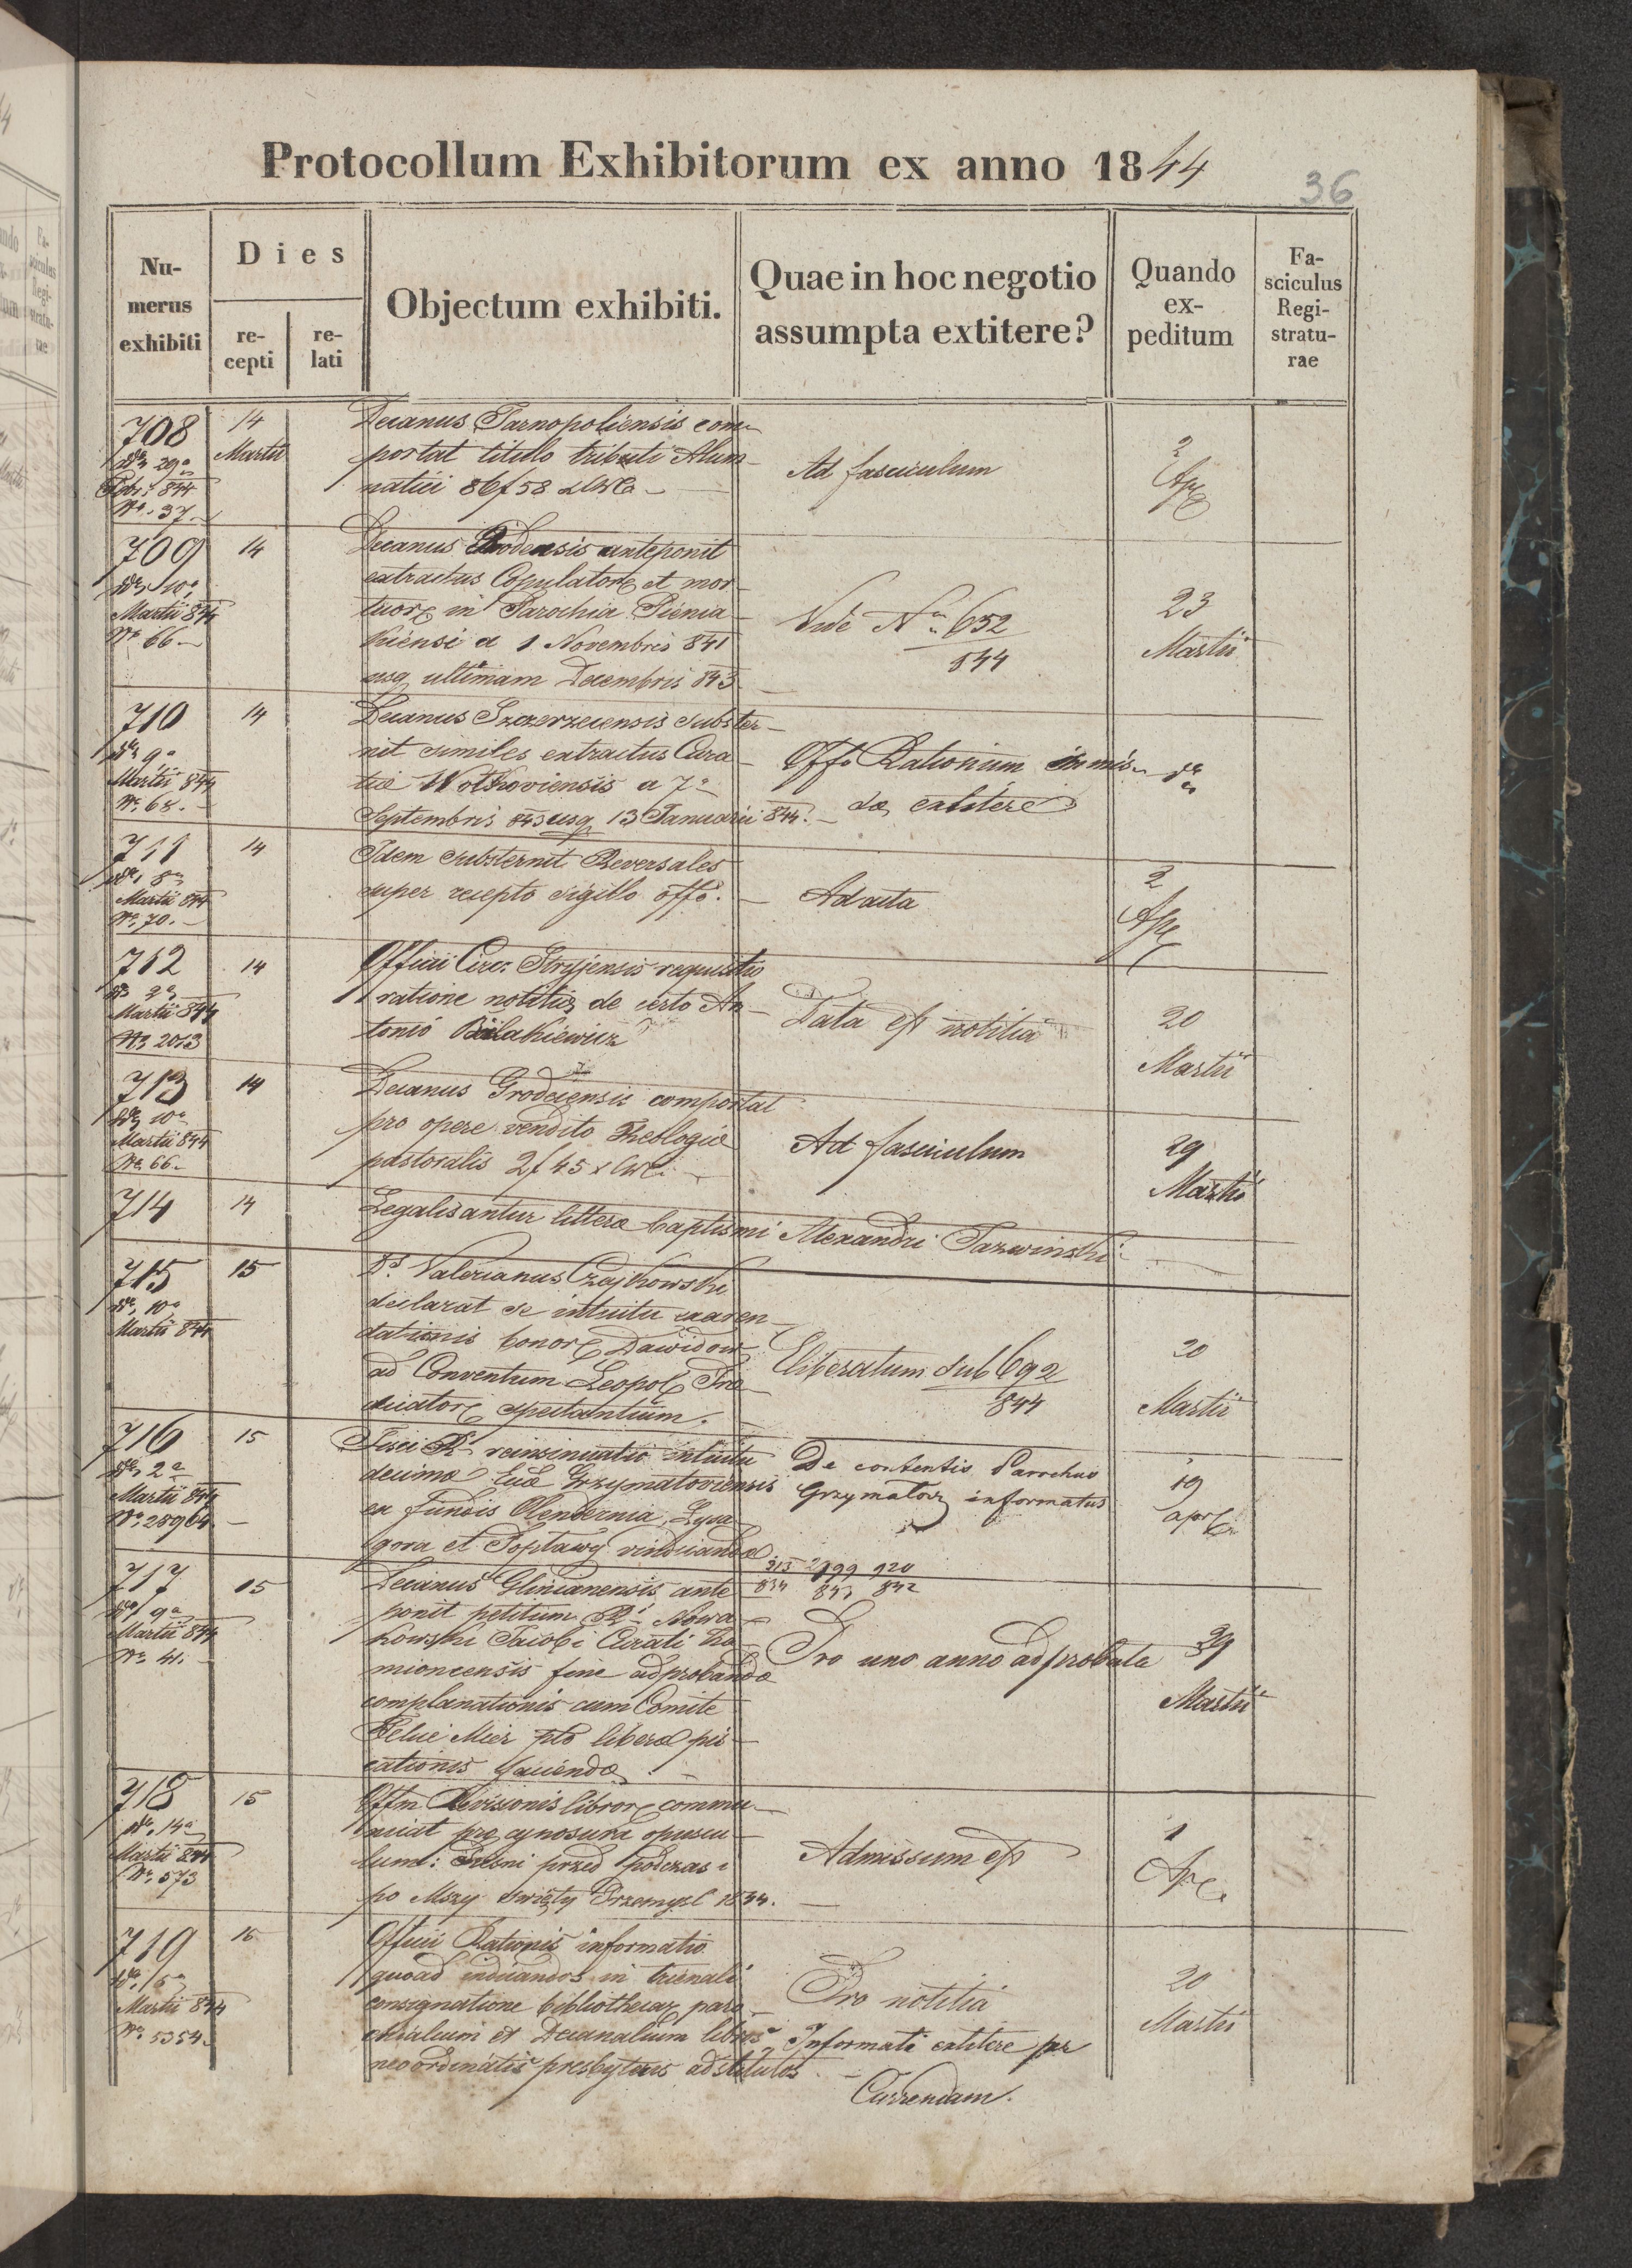 Protocollum Exhibitorum ex anno 1844
36
Nu-
merus
exhibiti
Dies
re-
cepti
re-
lati
Objectum exhibiti.
Quae in hoc negotio
assumpta extitere?
Quando
ex-
peditum
Fa-
sciculus
Regi-
stratu-
rae
708
29a
Febr: 844
No. 37.
14
Martii
Decanus Tarnopoliensis com-
portat titulo tributi Alum-
natici 86f 58
Ad fasciculum
2
Apr
709
10a
Martii 844
No 66
14
Decanus anteponit
extractus Copulator et mor
tuor in Parochia Pienia
kiensi a 1 Novembris 841
usq ultimam Decembris 843
Vide No. 652
844
23
Martii
710
9a
Martii 844
No. 68.
14
Decanus Szczerzecensis subster-
nit similes extractus Cura-
tiae Wolkoviensis a 7a
Septembris 843 usq 13 Januarii 844.
Offo Rationum
extitere
711
8a
Martii 844
No. 70.
14
Idem substernit Reversales
super recepto sigillo offo.
Ad acta
2
Apr
712
Martii 844
No 2013
14
Officii Circ: Stryjensis requisitio
ratione notitiae de certo An-
tonio Bilakiewicz
Data est notitia
20
Martii
713
10a
Martii 844
No. 66.
14
Decanus Grodecensis comportat
pro opere vendito Theologiae
pastoralis 2f 45 x
Ad fasciculum
29
Martii
714
14
Legalisantur litterae baptismi Alexandri Tarwinski
715
10a
Martii 844
15
Valerianus Czajkowski
declarat se intuitu exaren-
dationis bonor Dawidow
ad Conventum Leopol Prae
dicator spectantium.
Eliberatum sub 692
844
20
Martii
716
2a
Martii 844
No. 28964
15
Fisci R. reinsinuatio intuitu
decimae Grzymaloviensis
ex fundis Olendernia, Lysa
gora et Poptawy vindicandae
De contentis Parochus
Grzymalow informatus
19
apr
717
9a
Martii 844
No. 41.
15
Decanus Glinianensis ante
ponit petitum Nowa-
kowski Jacobi Curati Ka-
mioncensis fine adprobandae
complanationis cum Comite
Felice Mier pto liberae pis-
cationis faciendae
313 299 920
834 843 842
Pro uno anno adprobata
29
Martii
718
14a
Martii 844
No. 573
15
Offm Revisionis libror commu-
nicat pro cynosura opuscu-
lum: Piesni przed podczas i
po Mszy Swięty Przemysl 1834.
Admissum est
1
Apr
719
Martii 844
No. 5354.
16
Officii Rationis informatio
quoad indicandos in trienali
consignatione bibliothecar paro-
chialium et Decanalium libros
neoordinatis presbyteris adstitutos.
Pro notitia
Informati extitere per
Currendam.
20
Martii